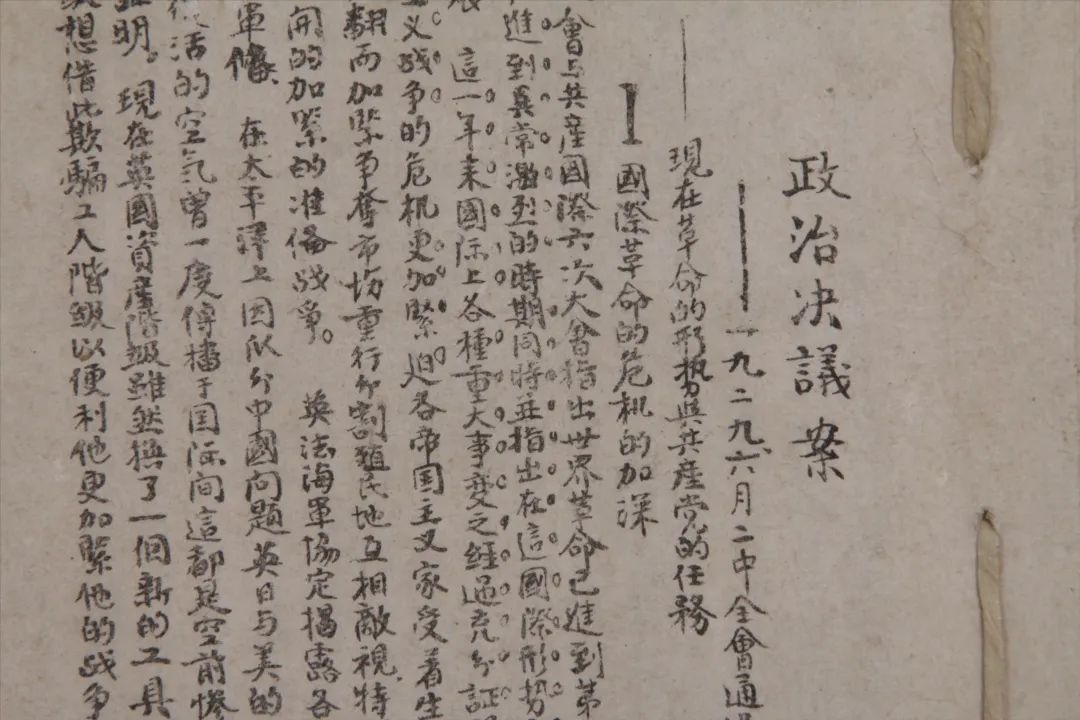 政治决議案
一九二九、六月二中全會通過
現在革命的形勢與共產党的任務
1 國際革命的危机的加深
會与共產國際六次大會指出世界革命已進到第
進到異常激烈的時期同時並指出在這國際形勢
這一年来國际上各種重大事变之經過充分証
义战争的危机更加緊迫各帝国主义家受着生
翻而加緊争奪市場重行分割殖民地互相敵視、特
開的加緊的准偹战争。 英法海軍協定揭露各
軍偹、 在太平洋上因瓜分中國问題英日与美的
活的空气曾一度傅播于国际间這都是空前惨
明。現在英國資產階級雖然換了一個新的工具
想借此欺騙工人階級以便利他更加緊他的战争